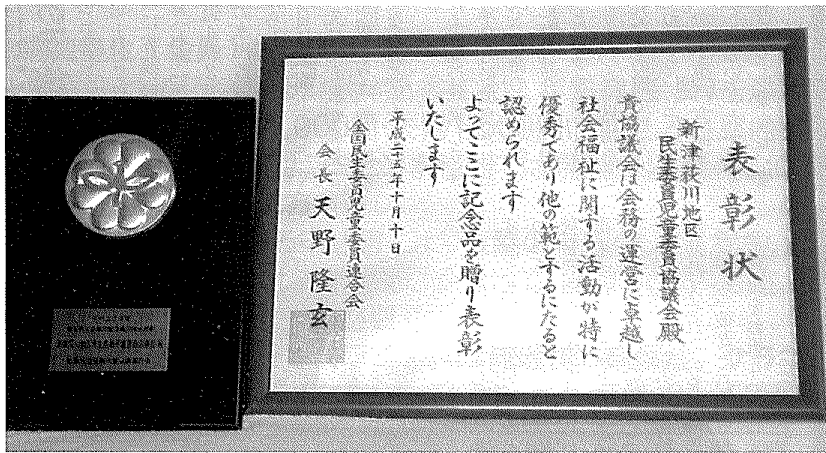 表彰状
新津荻川地区
民生委員児童委員協議会殿
貴協議会は会務の運営に卓越し
社会福祉に関する活動が特に
優秀であり他の範とするにたると
認められます
よってここに記念品を贈り表彰
いたします
平成二十五年十月十日
全国民生委員児童委員連合会
会長 天野隆玄